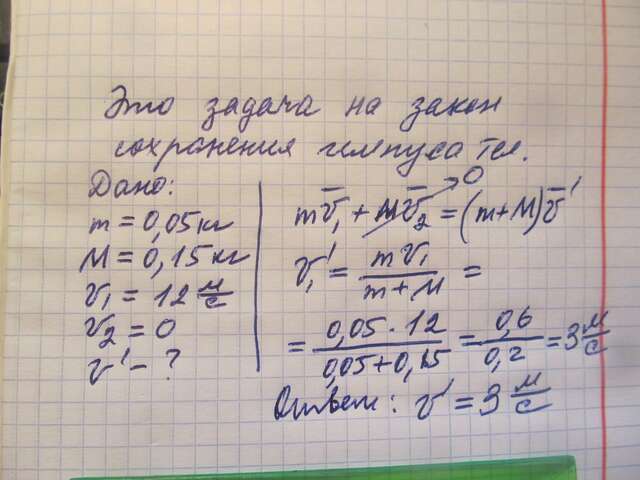 Это задача на закон
сохранения импуса тел.
Дано:
m = 0,05 кг
M = 0,15 кг
v₁ = 12 м/с
v₂ = 0
v' - ?
mv̅₁ + Mv̅₂ = (m+M)v̅'
0
v₁' = mv₁/(m+M) =
= (0,05 · 12)/(0,05+0,15) = 0,6/0,2 = 3 м/с
Ответ: v' = 3 м/с